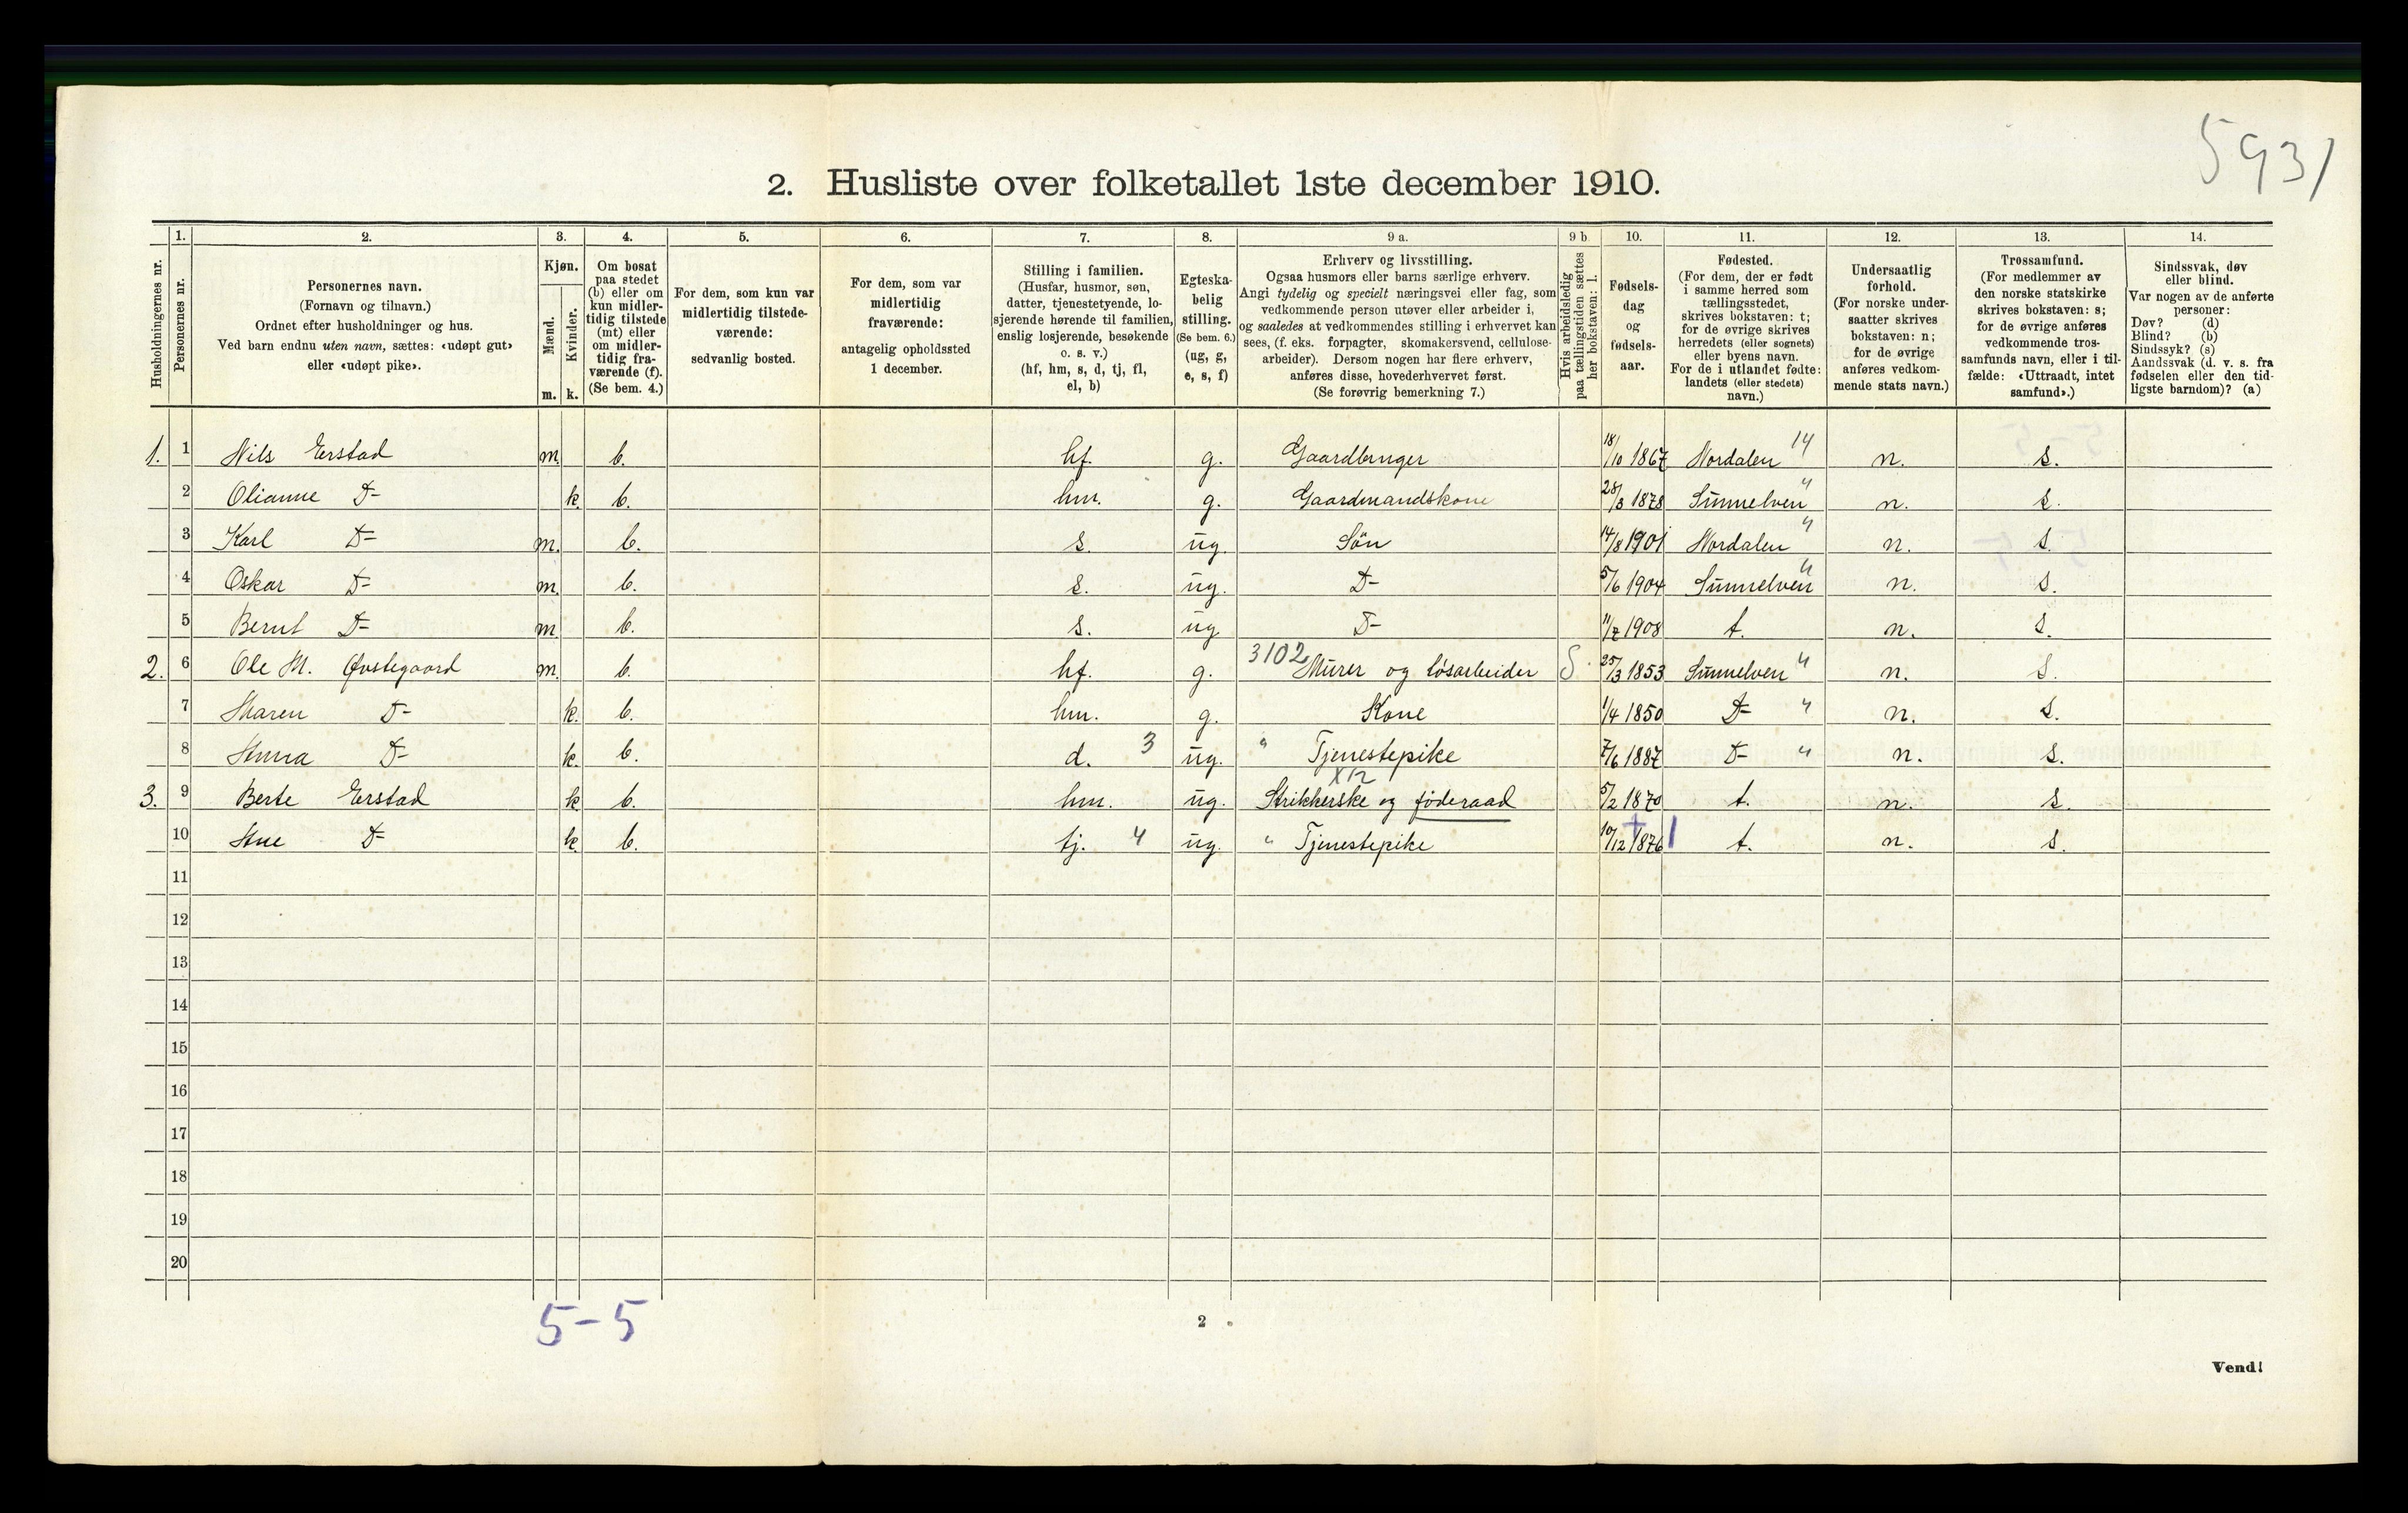 5931
2. Husliste over folketallet 1ste december 1910.
Husholdningernes nr.
1.
Personernes nr.
2.
Personernes navn.
(Fornavn og tilnavn.)
Ordnet efter husholdninger og hus.
Ved barn endnu uten navn, sættes: «udøpt gut»
eller «udøpt pike».
3.
Kjøn.
Mænd.
Kvinder.
m. k.
4.
Om bosat
paa stedet
(b) eller om
kun midler-
tidig tilstede
(mt) eller
om midler-
tidig fra-
værende (f).
(Se bem. 4.)
5.
For dem, som kun var
midlertidig tilstede-
værende:
sedvanlig bosted.
6.
For dem, som var
midlertidig
fraværende:
antagelig opholdssted
1 december.
7.
Stilling i familien.
(Husfar, husmor, søn,
datter, tjenestetyende, lo-
sjerende hørende til familien,
enslig losjerende, besøkende
o. s. v.)
(hf, hm, s, d, tj, fl,
el, b)
8.
Egteska-
belig
stilling.
(Se bem. 6.)
(ug, g,
e, s, f)
9 a.
Erhverv og livsstilling.
Ogsaa husmors eller barns særlige erhverv.
Angi tydelig og specielt næringsvei eller fag, som
vedkommende person utøver eller arbeider i,
og saaledes at vedkommendes stilling i erhvervet kan
sees, (f. eks. forpagter, skomakersvend, cellulose-
arbeider). Dersom nogen har flere erhverv,
anføres disse, hovederhvervet først.
(Se forøvrig bemerkning 7.)
9 b
Hvis arbeidsledig
paa tællingstiden sættes
her bokstaven: l.
10.
Fødsels-
dag
og
fødsels-
aar.
11.
Fødested.
(For dem, der er født
i samme herred som
tællingsstedet,
skrives bokstaven: t;
for de øvrige skrives
herredets (eller sognets)
eller byens navn.
For de i utlandet fødte:
landets (eller stedets)
navn.)
12.
Undersaatlig
forhold.
(For norske under-
saatter skrives
bokstaven: n;
for de øvrige
anføres vedkom-
mende stats navn.)
13.
Trossamfund.
(For medlemmer av
den norske statskirke
skrives bokstaven: s;
for de øvrige anføres
vedkommende tros-
samfunds navn, eller i til-
fælde: «Uttraadt, intet
samfund».)
14.
Sindssvak, døv
eller blind.
Var nogen av de anførte
personer:
Døv? (d)
Blind? (b)
Sindssyk? (s)
Aandssvak (d. v. s. fra
fødselen eller den tid-
ligste barndom)? (a)
1. 1 Nils Erstad m. b. hf. g. Gaardbruger 18/10 1867 Nordalen 14 n. s.
2 Olianne D- k. b. hm. g. Gaardmandskone 28/3 1878 Sunnelven " n. s.
3 Karl D- m. b. s. ug. Søn 14/8 1901 Nordalen " n. s.
4 Oskar D- m. b. s. ug. D- 5/6 1904 Sunnelven " n. s.
5 Bernt D- m. b. s. ug D- 1908 t. n. s.
2. 6 Ole M. Øvstegaard m. b. hf. g. 3102 Murer og løsarbeider S 25/3 1853 Sunnelven " n. s.
7 Maren D- k. b. hm. g. Kone 1/4 1850 D- " n. s.
8 Anna D- k. b. d. 3 ug. " Tjenestepike 7/6 1887 D- " n. s.
3. 9 Berte Erstad k b. hm. ug. Strikkerske og føderaad 5/2 1870 t. n. s.
10 Ane D- k. b. tj. 4 ug. " Tjenestepike 10/12 1876 t. n. s.
11
12
13
14
15
16
17
18
19
20
5-5
2
Vend!